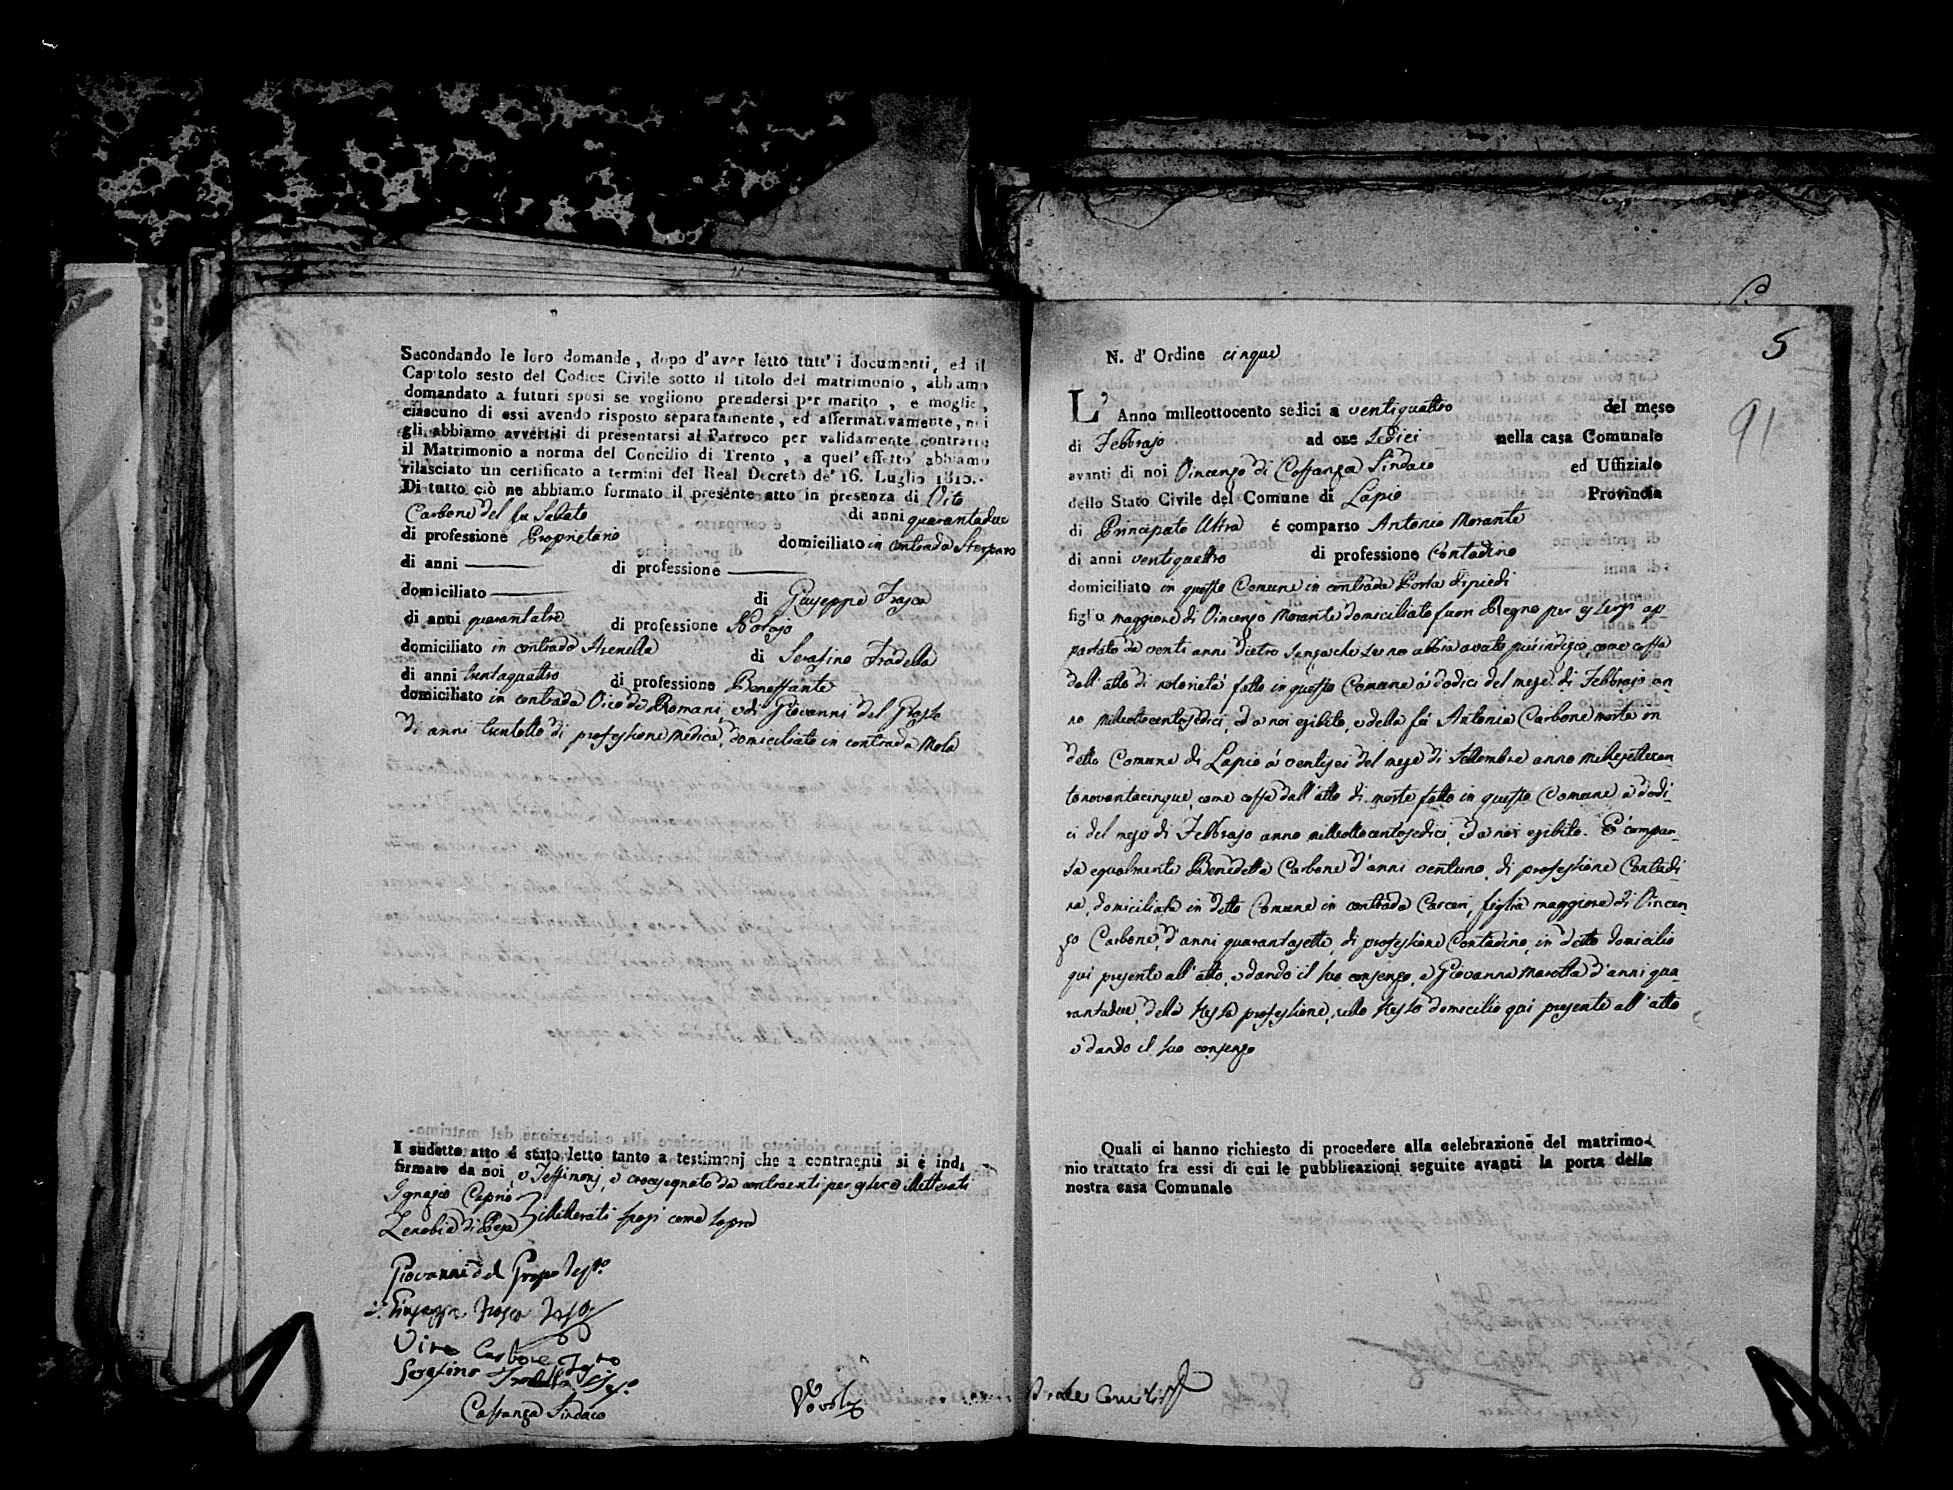 Secondando le loro domande, dopo d'aver letto tutt' i documenti, ed il
Capitolo sesto del Codice Civile sotto il titolo del matrimonio, abbiamo
domandato a futuri sposi se vogliono prendersi per marito, e moglie,
ciascuno di essi avendo risposto separatamente, ed affermativamente, noi
gli abbiamo avvertiti di presentarsi al Parroco per validamente contrarre
il Matrimonio a norma del Concilio di Trento, a quel' effetto abbiamo
rilasciato un certificato a termini del Real Decreto de' 16. Luglio 1815.
Di tutto ciò ne abbiamo formato il presente atto in presenza di Vito
Carbone del fu Sabato di anni quarantadue
di professione Proprietario domiciliato in contrada
di anni di professione
domiciliato di Giuseppe Frasca
di anni quarantatre di professione Notajo
domiciliato in contrada Arenella di Serafino Tradella
di anni trentaquattro di professione Benestante
domiciliato in contrada Vico de Romani, e di Giovanni del Grosso
di anni trentotto di professione Medico, domiciliato in contrada Mola
I sudetto atto é stato letto tanto a testimonj che a contraenti si è indi
firmato da noi, e Testimonj, e crocesegnato da contraenti per illetterati
Ignazio Caprio
Zenobia di Pesa illetterati sposi come sopra
Giovanni del Grosso
Giuseppe Frasca
Vito Carbone
Serafino Tradella
Cossanza Sindaco
5
N. d' Ordine cinque
91
L' Anno milleottocento sedici a ventiquattro del mese
di Febbrajo ad ore sedici nella casa Comunale
avanti di noi Vincenzo di Cossanza Sindaco ed Uffiziale
dello Stato Civile del Comune di Lapio Provincia
di Principato Ultra é comparso Antonio Morante
di anni ventiquattro di professione Contadino
domiciliato in questo Comune in contrada Porta di piedi
figlio maggiore di Vincenzo Morante domiciliato fuori Regno per essersi ap-
partato da venti anni dietro senza che se ne abbia avuto più indizio, come costa
dall' atto di notorietà fatto in questo Comune a' dodici del mese di Febbrajo an-
no milleottocentosedici, ed a noi esibito, e della fù Antonia Carbone morta in
detto Comune di Lapio a' ventisei del mese di Settembre anno millesettecen-
tonovantacinque, come costa dall' atto di morte fatto in questo Comune a' dodi-
ci del mese di Febbrajo anno milleottocentosedici, ed a noi esibito. E' compar-
sa egualmente Benedetta Carbone d'anni ventuno, di professione Contadi-
na, domiciliata in detto Comune in contrada Carceri, figlia maggiore di Vincen-
zo Carbone, d'anni quarantasette, di professione Contadino, in detto domicilio
qui presente all' atto, e dando il suo consenzo, e Giovanna Marotta d'anni qua-
rantadue, della stessa professione, nello stesso domicilio qui presente all' atto
e dando il suo consenzo
Quali ci hanno richiesto di procedere alla celebrazione del matrimo-
nio trattato fra essi di cui le pubblicazioni seguite avanti la porta della
nostra casa Comunale